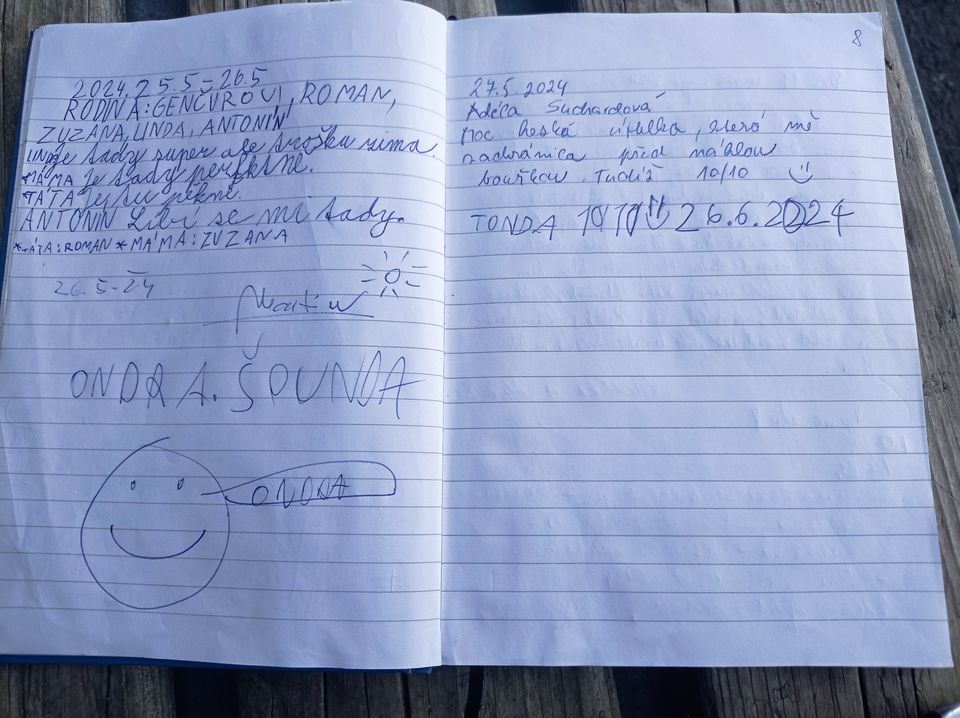 2024.25.5-26.5
RODINA: GENČUROVI, ROMAN,
ZUZANA, LINDA, ANTONÍN
je tady super ale trošku zima.
MÁMA Je tady perfktně.
TÁTA Je tu pěkně.
ANTONÍN Líbí se mi tady.
*TÁTA: ROMAN *MÁMA: ZUZANA
26.5-24
Martin
ONDRA. ŠPUNDA
ONDRA
8
27.5 2024
Adéla Suchardová
Moc hezká útulka, která mě
zachránila před náhlou
bouřkou. Tudíž 10/10
TONDA 26.6.2024